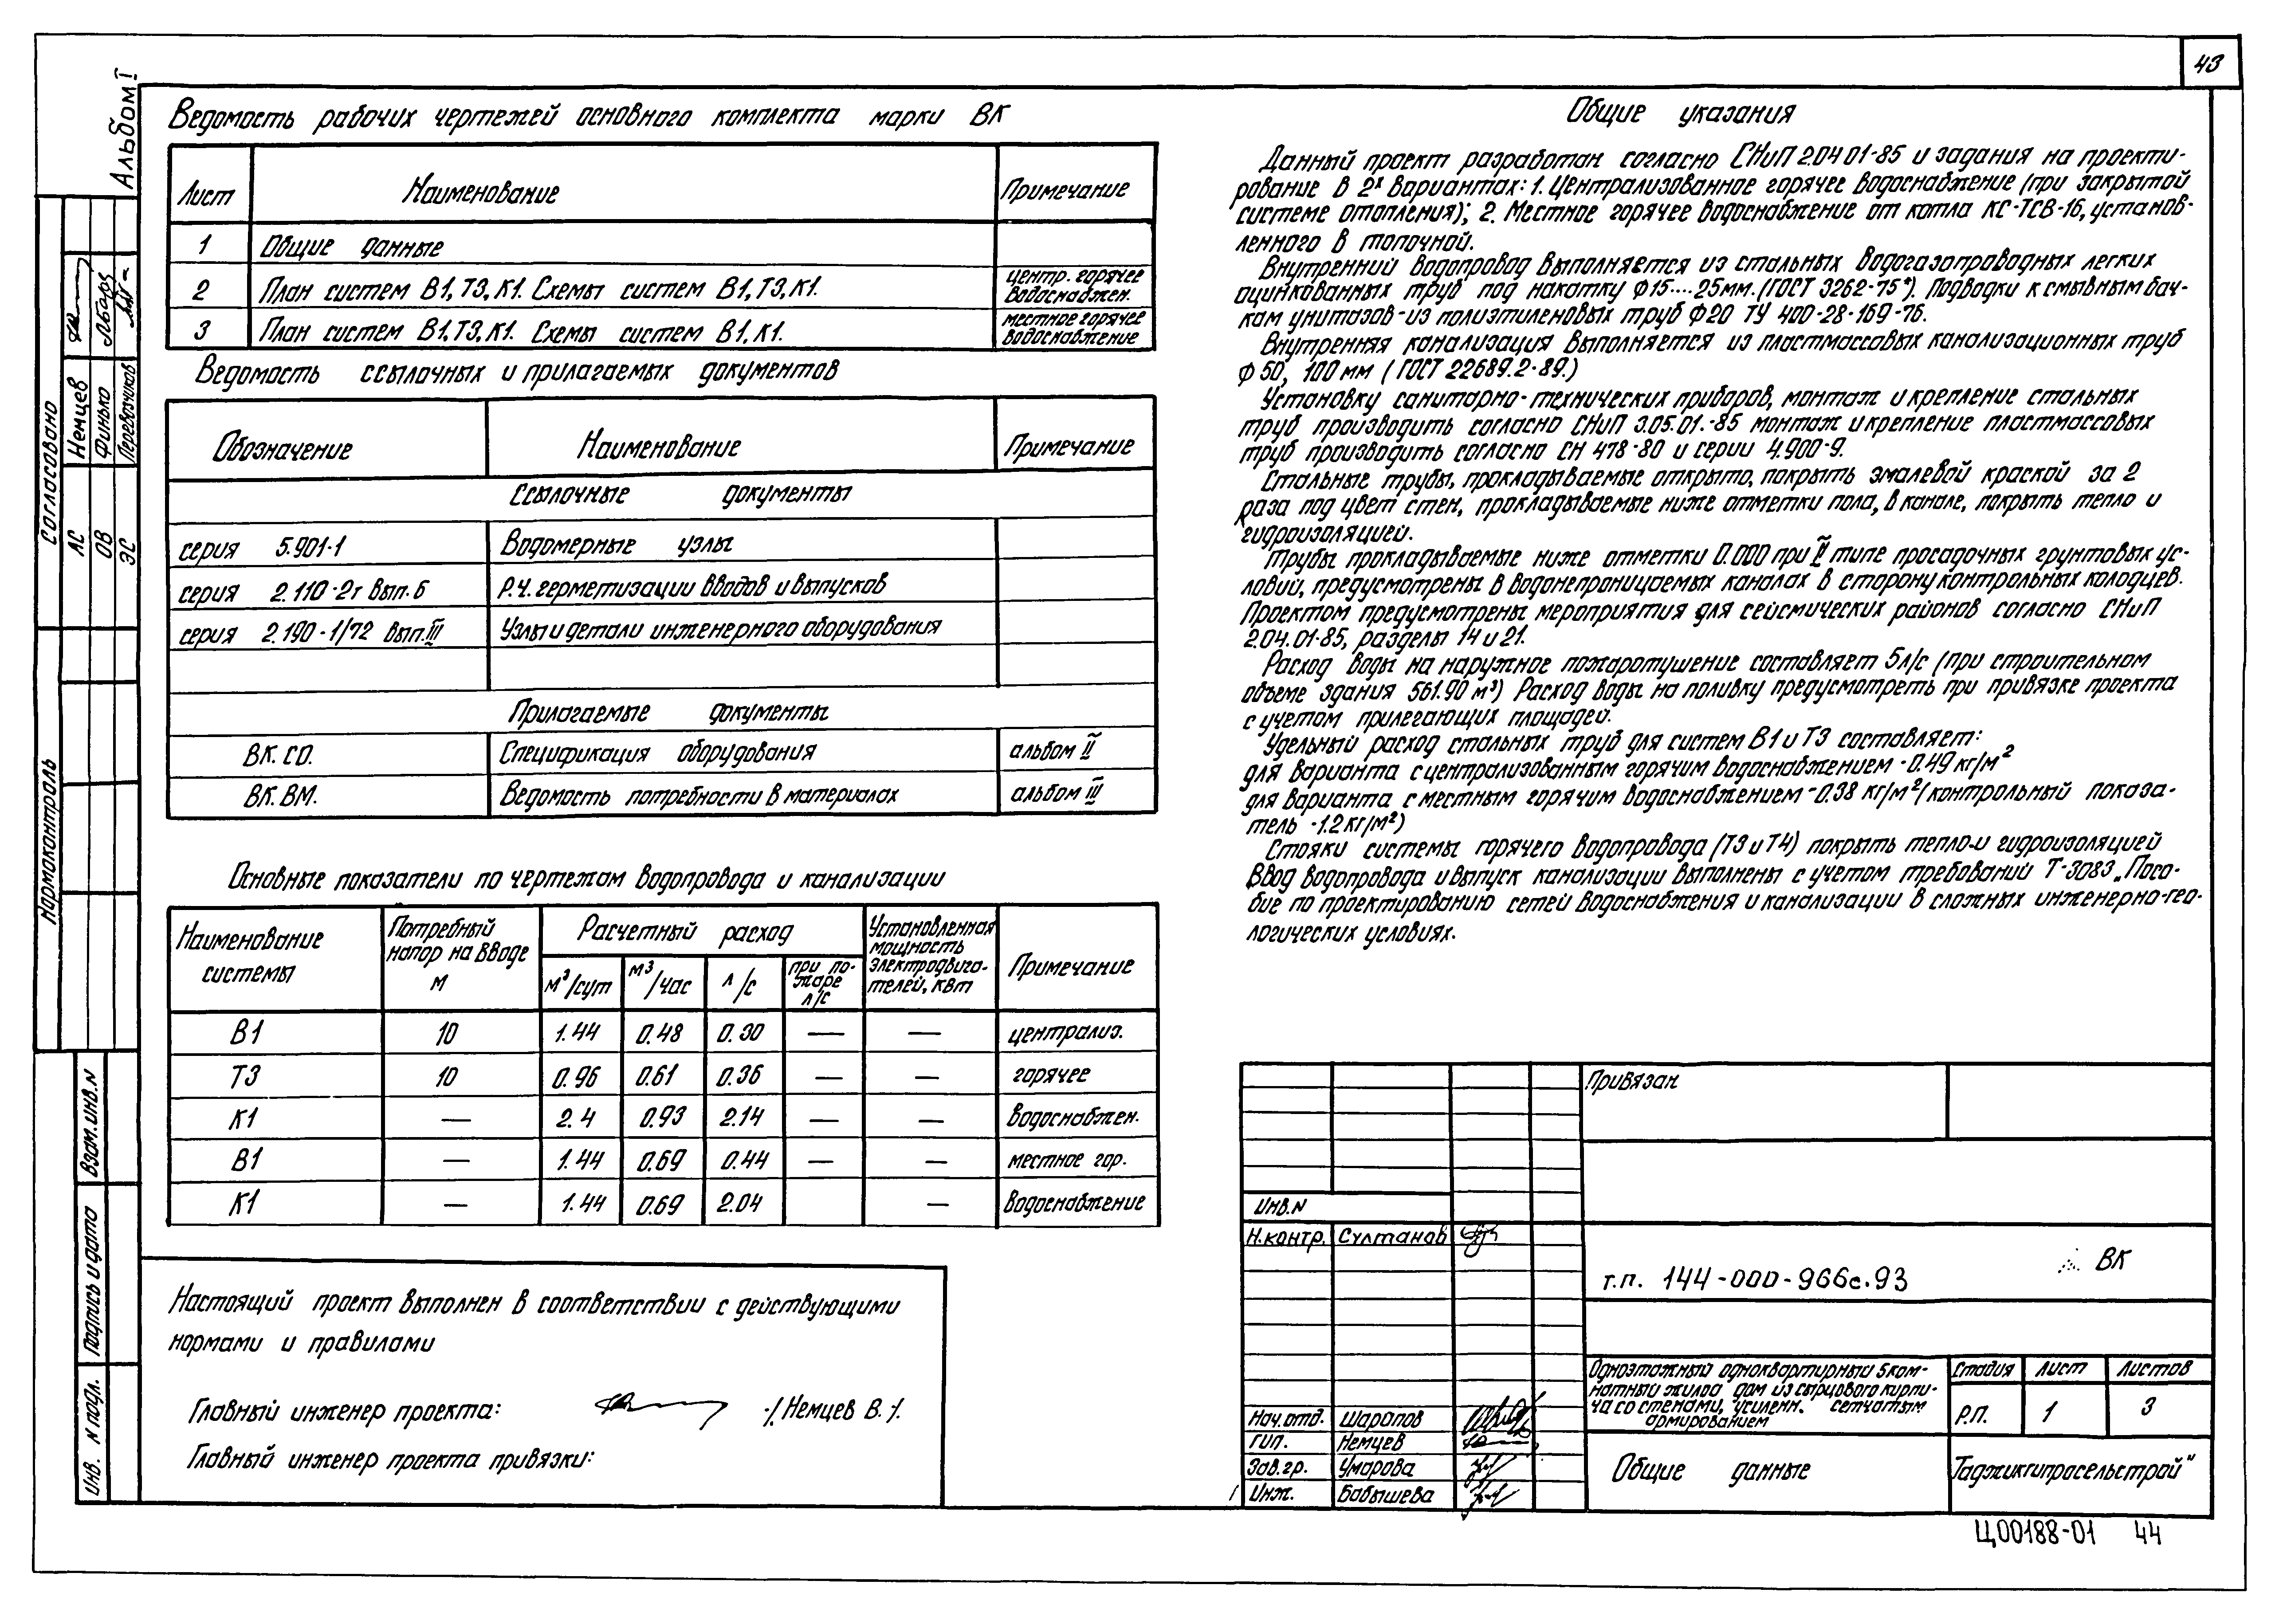 43
Альбом I
Ведомость рабочих чертежей основного комплекта марки ВК
Лист Наименование Примечание
1 Общие данные
2 План систем В1, Т3, К1. Схемы систем В1, Т3, К1. центр. горячее водоснабжен.
3 План систем В1, Т3, К1. Схемы систем В1, К1. местное горячее водоснабжение
Ведомость ссылочных и прилагаемых документов
Обозначение Наименование Примечание
Ссылочные документы
серия 5.901-1 Водомерные узлы
серия 2.110-2г вып. 6 Р.ч. герметизации вводов и выпусков
серия 2.190-1/72 вып. III Узлы и детали инженерного оборудования
Прилагаемые документы
ВК. СО. Спецификация оборудования альбом II
ВК. ВМ. Ведомость потребности в материалах альбом III
Основные показатели по чертежам водопровода и канализации
Наименование системы Потребный напор на вводе м Расчетный расход Установленная мощность электродвигателей, квт Примечание
м³/сут м³/час л/с при пожаре л/с
В1 10 1.44 0.48 0.30 — — централиз.
Т3 10 0.96 0.61 0.36 — — горячее
К1 — 2.4 0.93 2.14 — — водоснабжен.
В1 — 1.44 0.69 0.44 — — местное гор.
К1 — 1.44 0.69 2.04 — водоснабжение
Настоящий проект выполнен в соответствии с действующими
нормами и правилами
Главный инженер проекта: -/. Немцев В. -/.
Главный инженер проекта привязки:
Общие указания
Данный проект разработан согласно СНиП 2.04 01-85 и задания на проекти-
рование в 2х вариантах: 1. Централизованное горячее водоснабжение (при закрытой
системе отопления); 2. Местное горячее водоснабжение от котла КС-ТСВ-16, установ-
ленного в топочной.
Внутренний водопровод выполняется из стальных водогазопроводных легких
оцинкованных труб под накатку Ф15....25мм. (ГОСТ 3262-75*). Подводки к смывным бач-
кам унитазов - из полиэтиленовых труб Ф20 ТУ 400-28-169-76.
Внутренняя канализация выполняется из пластмассовых канализационных труб
Ф 50, 100 мм (ГОСТ 22689.2-89.)
Установку санитарно-технических приборов, монтаж и крепление стальных
труб производить согласно СНиП 3.05.01.-85 монтаж и крепление пластмассовых
труб производить согласно СН 478-80 и серии 4.900-9.
Стальные трубы, прокладываемые открыто, покрыть эмалевой краской за 2
раза под цвет стен, прокладываемые ниже отметки пола, в канале, покрыть тепло и
гидроизоляцией.
Трубы прокладываемые ниже отметки 0.000 при II типе просадочных грунтовых ус-
ловий, предусмотрены в водонепроницаемых каналах в сторону контрольных колодцев.
Проектом предусмотрены мероприятия для сейсмических районов согласно СНиП
2.04.01-85, разделы 14 и 21.
Расход воды на наружное пожаротушение составляет 5л/с (при строительном
объеме здания 561.90 м³) Расход воды на поливку предусмотреть при привязке проекта
с учетом прилегающих площадей.
Удельный расход стальных труб для систем В1 и Т3 составляет:
для варианта с централизованным горячим водоснабжением - 0.49 кг/м²
для варианта с местным горячим водоснабжением - 0.38 кг/м² (контрольный показа-
тель -1.2 кг/м²)
Стояки системы горячего водопровода (Т3 и Т4) покрыть тепло-и гидроизоляцией
Ввод водопровода и выпуск канализации выполнены с учетом требований Т-3083 „Посо-
бие по проектированию сетей водоснабжения и канализации в сложных инженерно-гео-
логических условиях.
Привязан
Инв. N
Н.контр. Султанов
т.п. 144-000-966с.93 ВК
Нач.отд. Шарапов
ГИП. Немцев
Зав.гр. Умарова
Инж. Бабышева
Одноэтажный одноквартирный 5 ком-
натный жилой дом из сырцового кирпи-
ча со стенами, усиленн. сетчатым
армированием
Стадия Лист Листов
Р.П. 1 3
Общие данные
Таджикгипросельстрой"
Ц00188-01 44
Согласовано
ЛС Немцев
ОВ Финько
ЭС Перевозчиков
Нормоконтроль
Взам. инв. N
Подпись и дата
Инв. N подл.